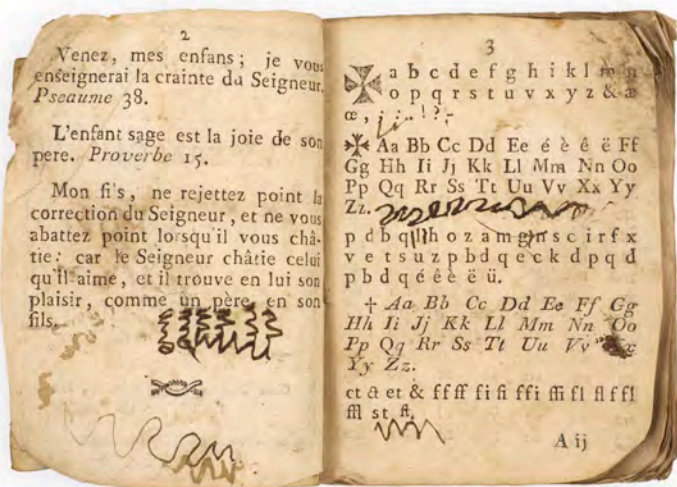 2
Venez, mes enfans ; je vous
enseignerai la crainte du Seigneur.
Pseaume 38.
L'enfant sage est la joie de son
pere. Proverbe 15.
Mon fi's, ne rejettez point la
correction du Seigneur, et ne vous
abattez point lorsqu'il vous châ-
tie: car le Seigneur châtie celui
qu'il aime, et il trouve en lui son
plaisir, comme un père en son
fils.
3
a b c d e f g h i k l m n
o p q r s t u v x y z & æ
œ , ; : . ! ? -
Aa Bb Cc Dd Ee é è ê ë Ff
Gg Hh Ii Jj Kk Ll Mm Nn Oo
Pp Qq Rr Ss Tt Uu Vv Xx Yy
Zz.
p d b q h o z a m g n s c i r f x
v e t s u z p b d q e c k d p q d
p b d q é ê è ë ü.
† Aa Bb Cc Dd Ee Ff Gg
Hh Ii Jj Kk Ll Mm Nn Oo
Pp Qq Rr Ss Tt Uu Vv Xx
Yy Zz.
ct ct et & ff ff fi fi ffi ffi fl fl ffl
ffl st st.
A ij